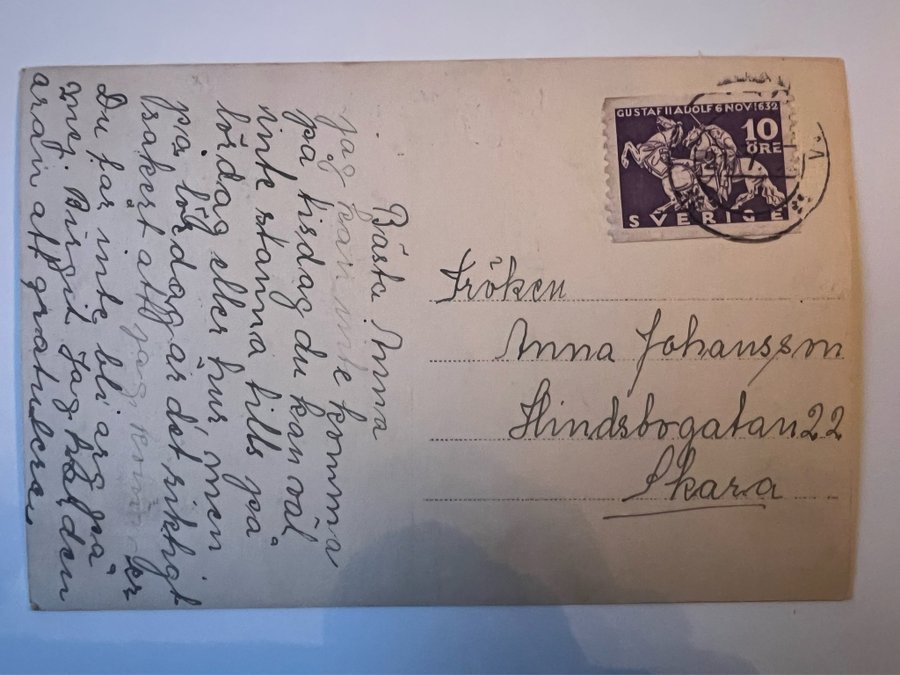 Bästa Anna
jag kan inte komma
på tisdag du kan väl
inte stanna tills på
lördag eller hur men
på lördag är det riktigt
säkert att jag kommer
Du får inte bli arg på
mej Birgit Jag har den
äran att gratulera
GUSTAF II ADOLF 6 NOV. 1632
10
ÖRE
SVERIGE
Fröken
Anna Johansson
Hindsbogatan 22
Skara